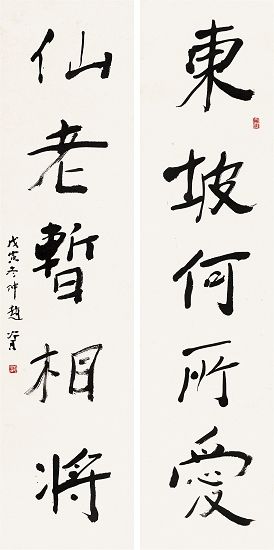 東坡何所愛
仙老暫相將
戊寅冬仲趙冷月